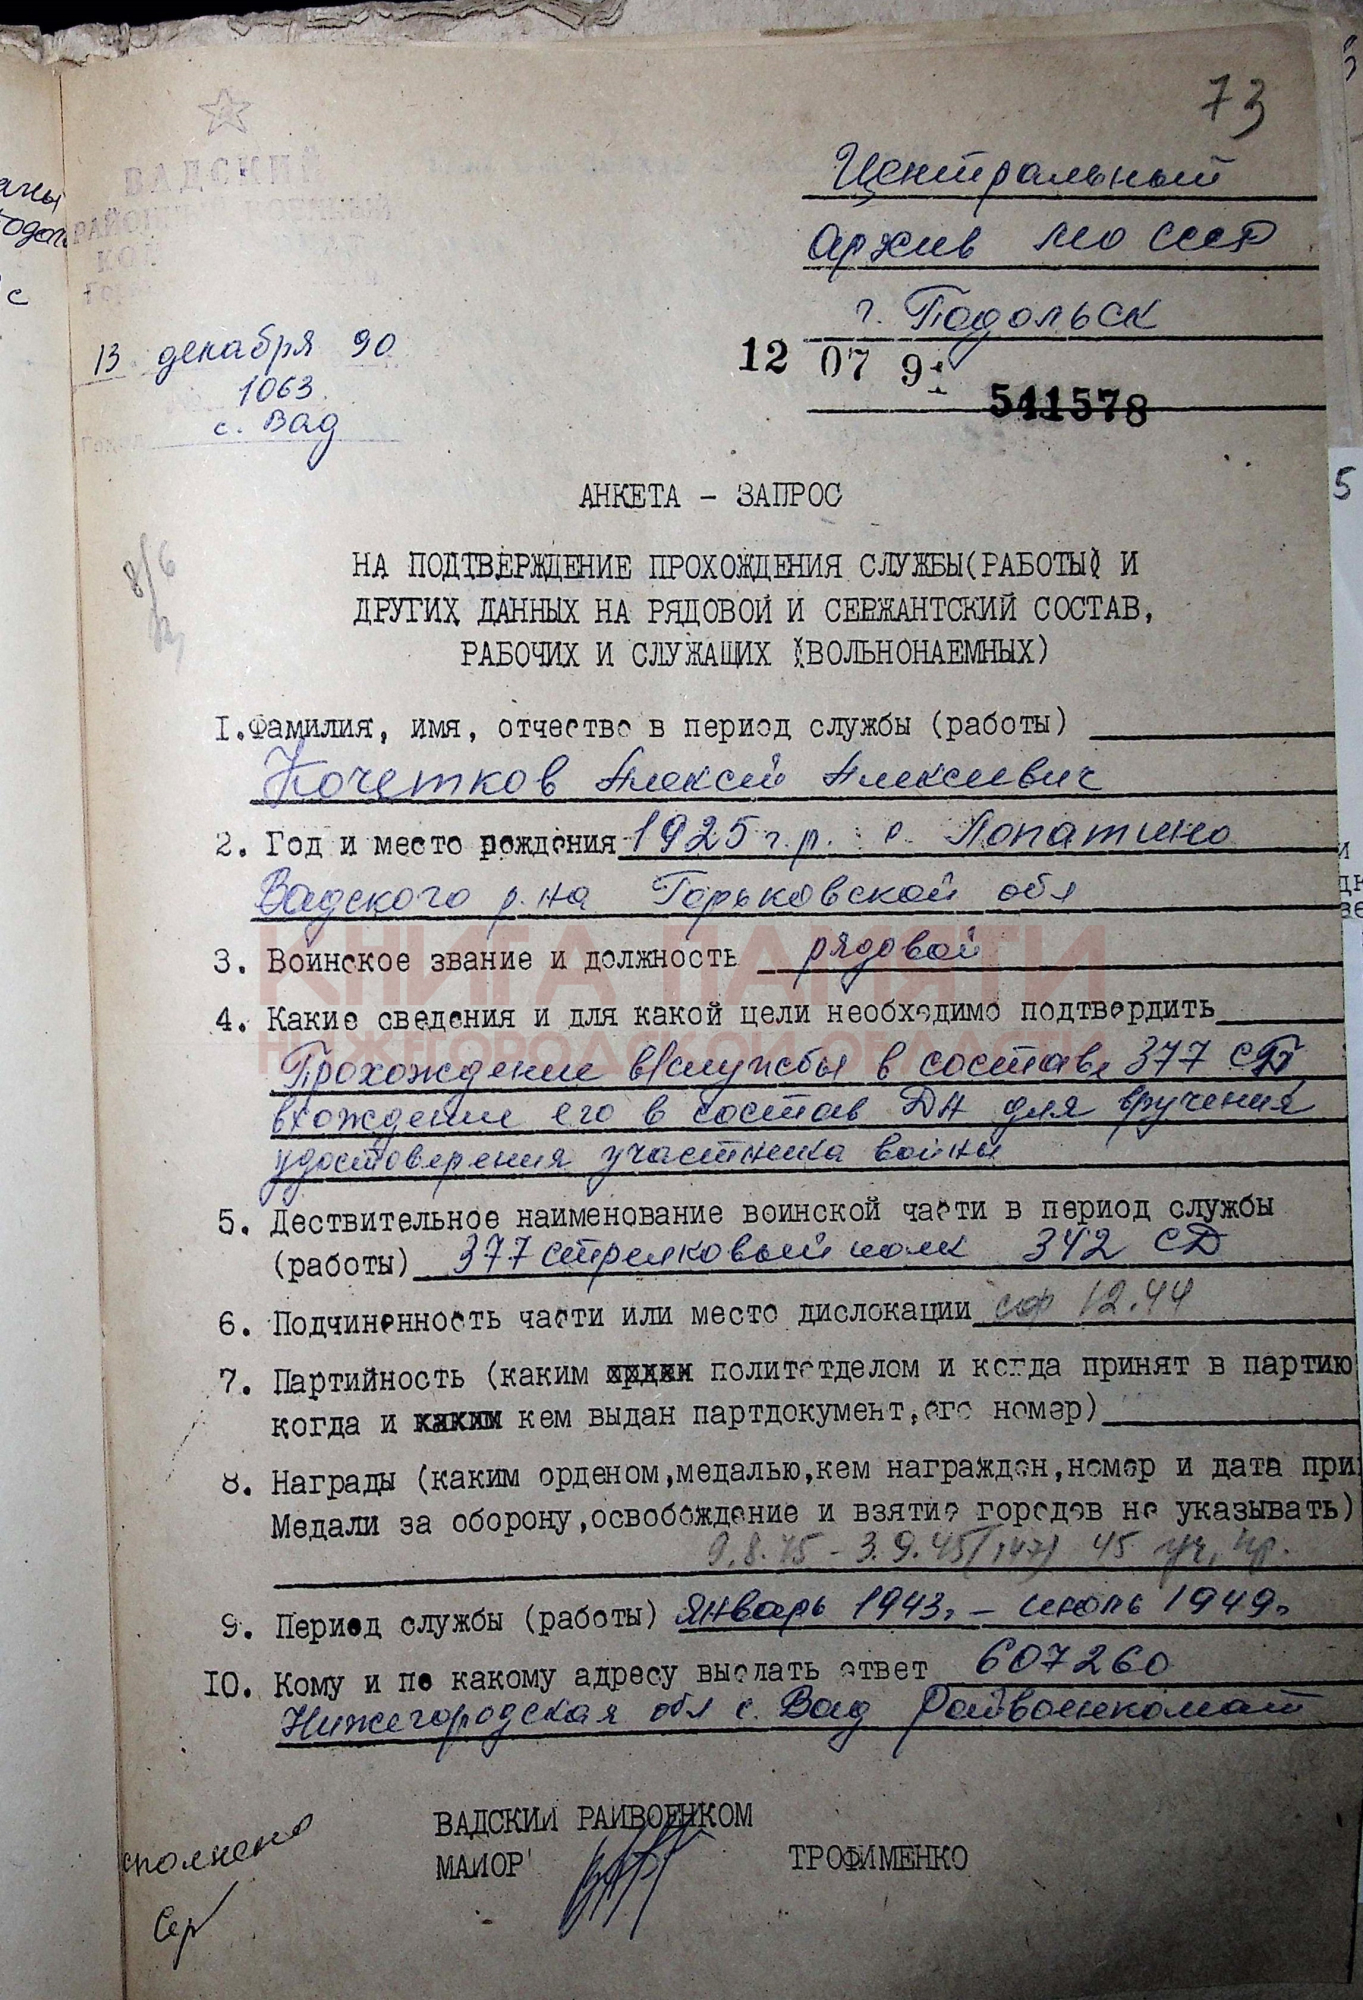 73
Центральный
ВАДСКИЙ
архив МО СССР
г. Подольск
13 декабря 90
12 07 91
1063
541578
с. Вад
АНКЕТА - ЗАПРОС
8/6
НА ПОДТВЕРЖДЕНИЕ ПРОХОЖДЕНИЯ СЛУЖБЫ(РАБОТЫ) И
ДРУГИХ ДАННЫХ НА РЯДОВОЙ И СЕРЖАНТСКИЙ СОСТАВ,
РАБОЧИХ И СЛУЖАЩИХ (ВОЛЬНОНАЕМНЫХ)
I.Фамилия, имя, отчество в период службы (работы)
Кочетков Алексей Алексеевич
2. Год и место рождения 1925 г.р. с. Лопатино
Вадского р-на Горьковской обл
КНИГА ПАМЯТИ
3. Воинское звание и должность рядовой
4. Какие сведения и для какой цели необходимо подтвердить
НИЖЕГОРОДСКОЙ ОБЛАСТИ
Прохождение в/службы в составе 377 СП,
вхождение его в состав ДА для вручения
удостоверения участника войны
5. Дествительное наименование воинской части в период службы
(работы) 377 стрелковый полк 342 СД
6. Подчиненность части или место дислокации сф 12.44
7. Партийность (каким политотделом и когда принят в партию
когда и кем выдан партдокумент,его номер)
8. Награды (каким орденом,медалью,кем награжден,номер и дата при
Медали за оборону,освобождение и взятие городов не указывать)
9.8.45 - 3.9.45
9. Период службы (работы) январь 1943г. - июль 1949г.
10. Кому и по какому адресу выслать ответ 607260
Нижегородская обл с. Вад Райвоенкомат
ВАДСКИЙ РАЙВОЕНКОМ
МАЙОР ТРОФИМЕНКО
сполнено
5